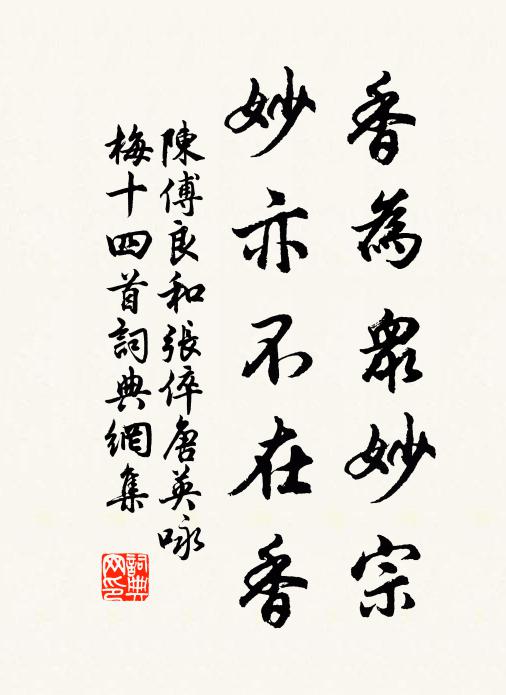 香為眾妙宗
妙亦不在香
陳傅良和張倅唐英咏
梅十四首詞典網集
詞典
网印